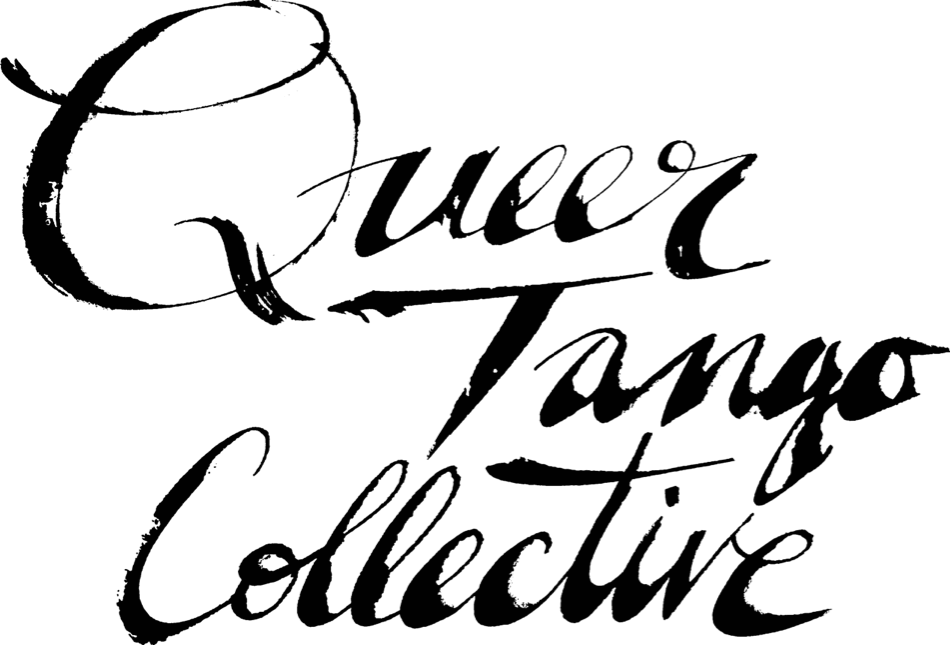 Queer
Tango
Collective